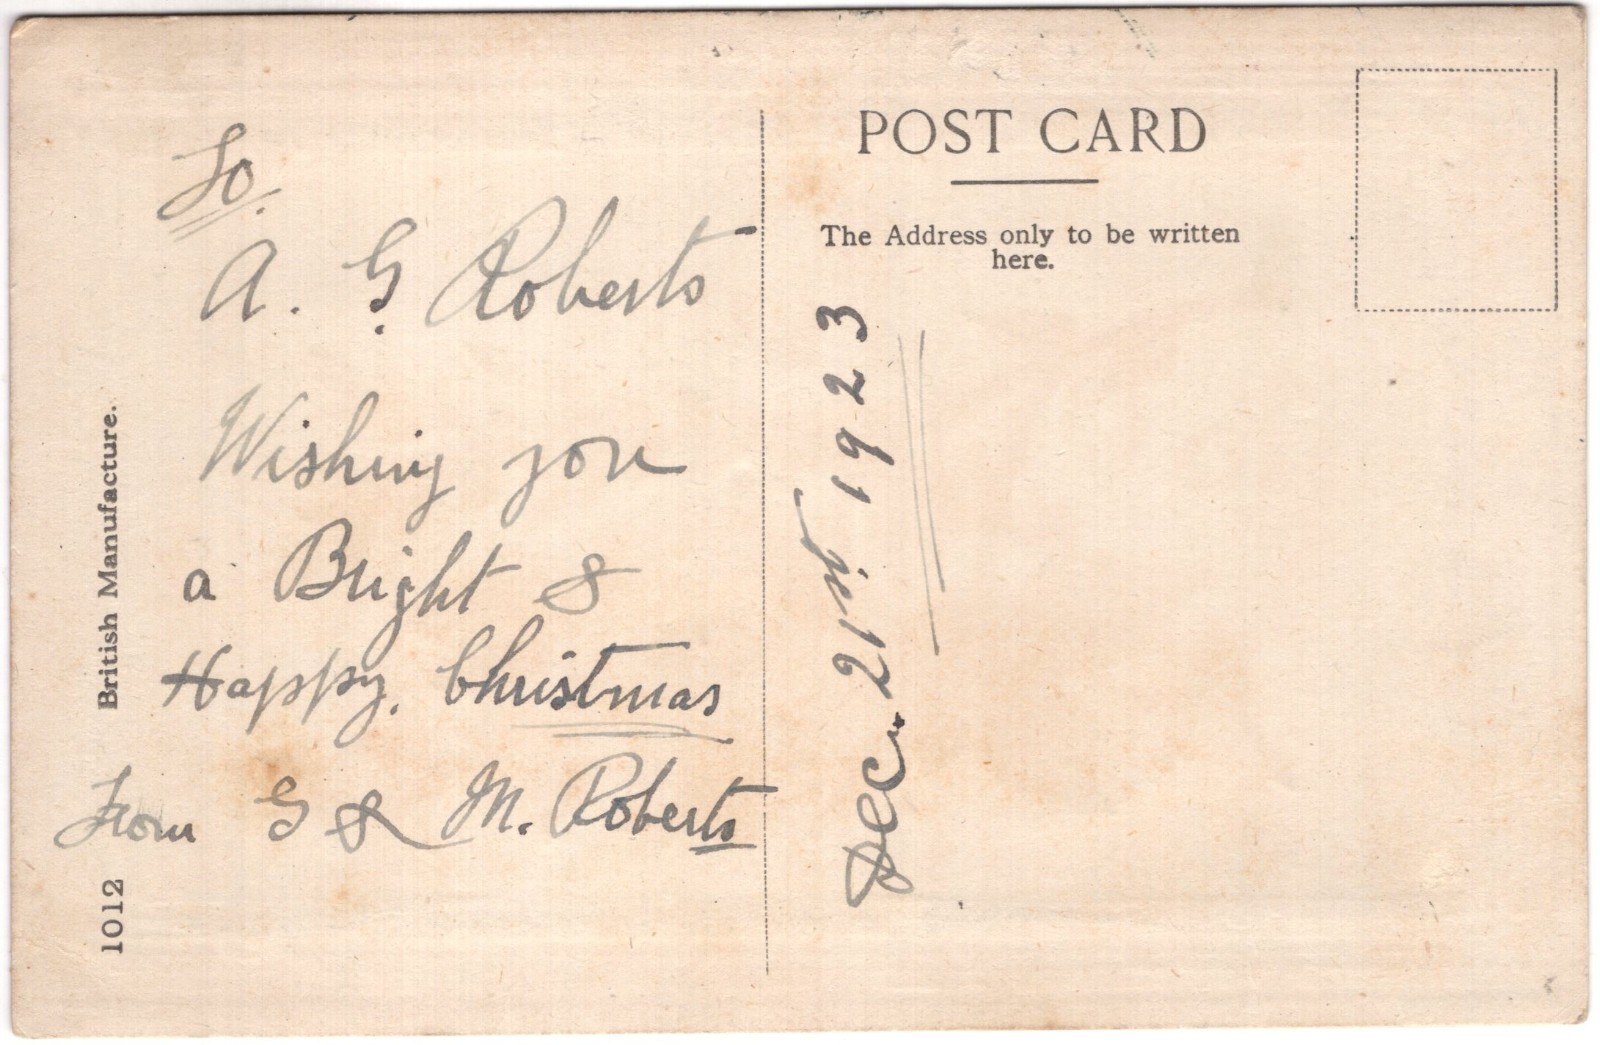 To.
A. G. Roberts
Wishing you
a Bright &
Happy. Christmas
From G & M. Roberts
British Manufacture.
1012
POST CARD
The Address only to be written
here.
Dec. 21st. 1923